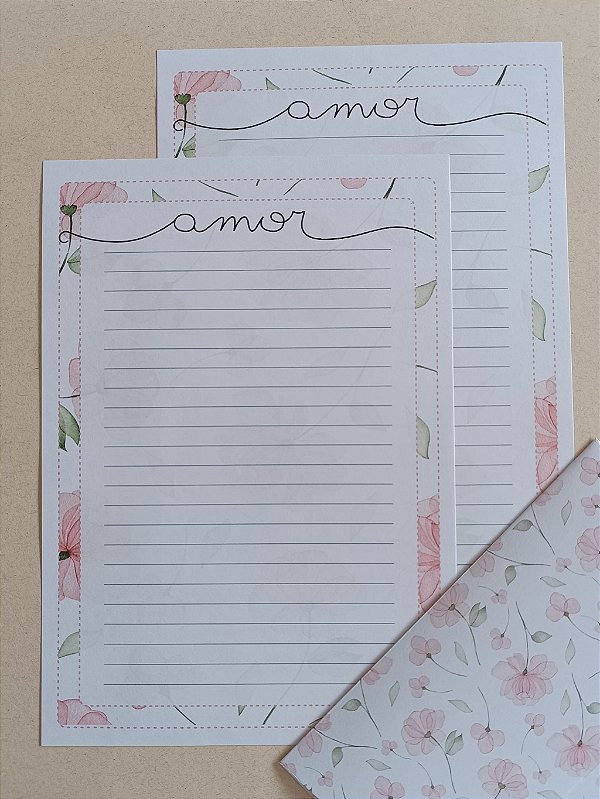 amor
amor